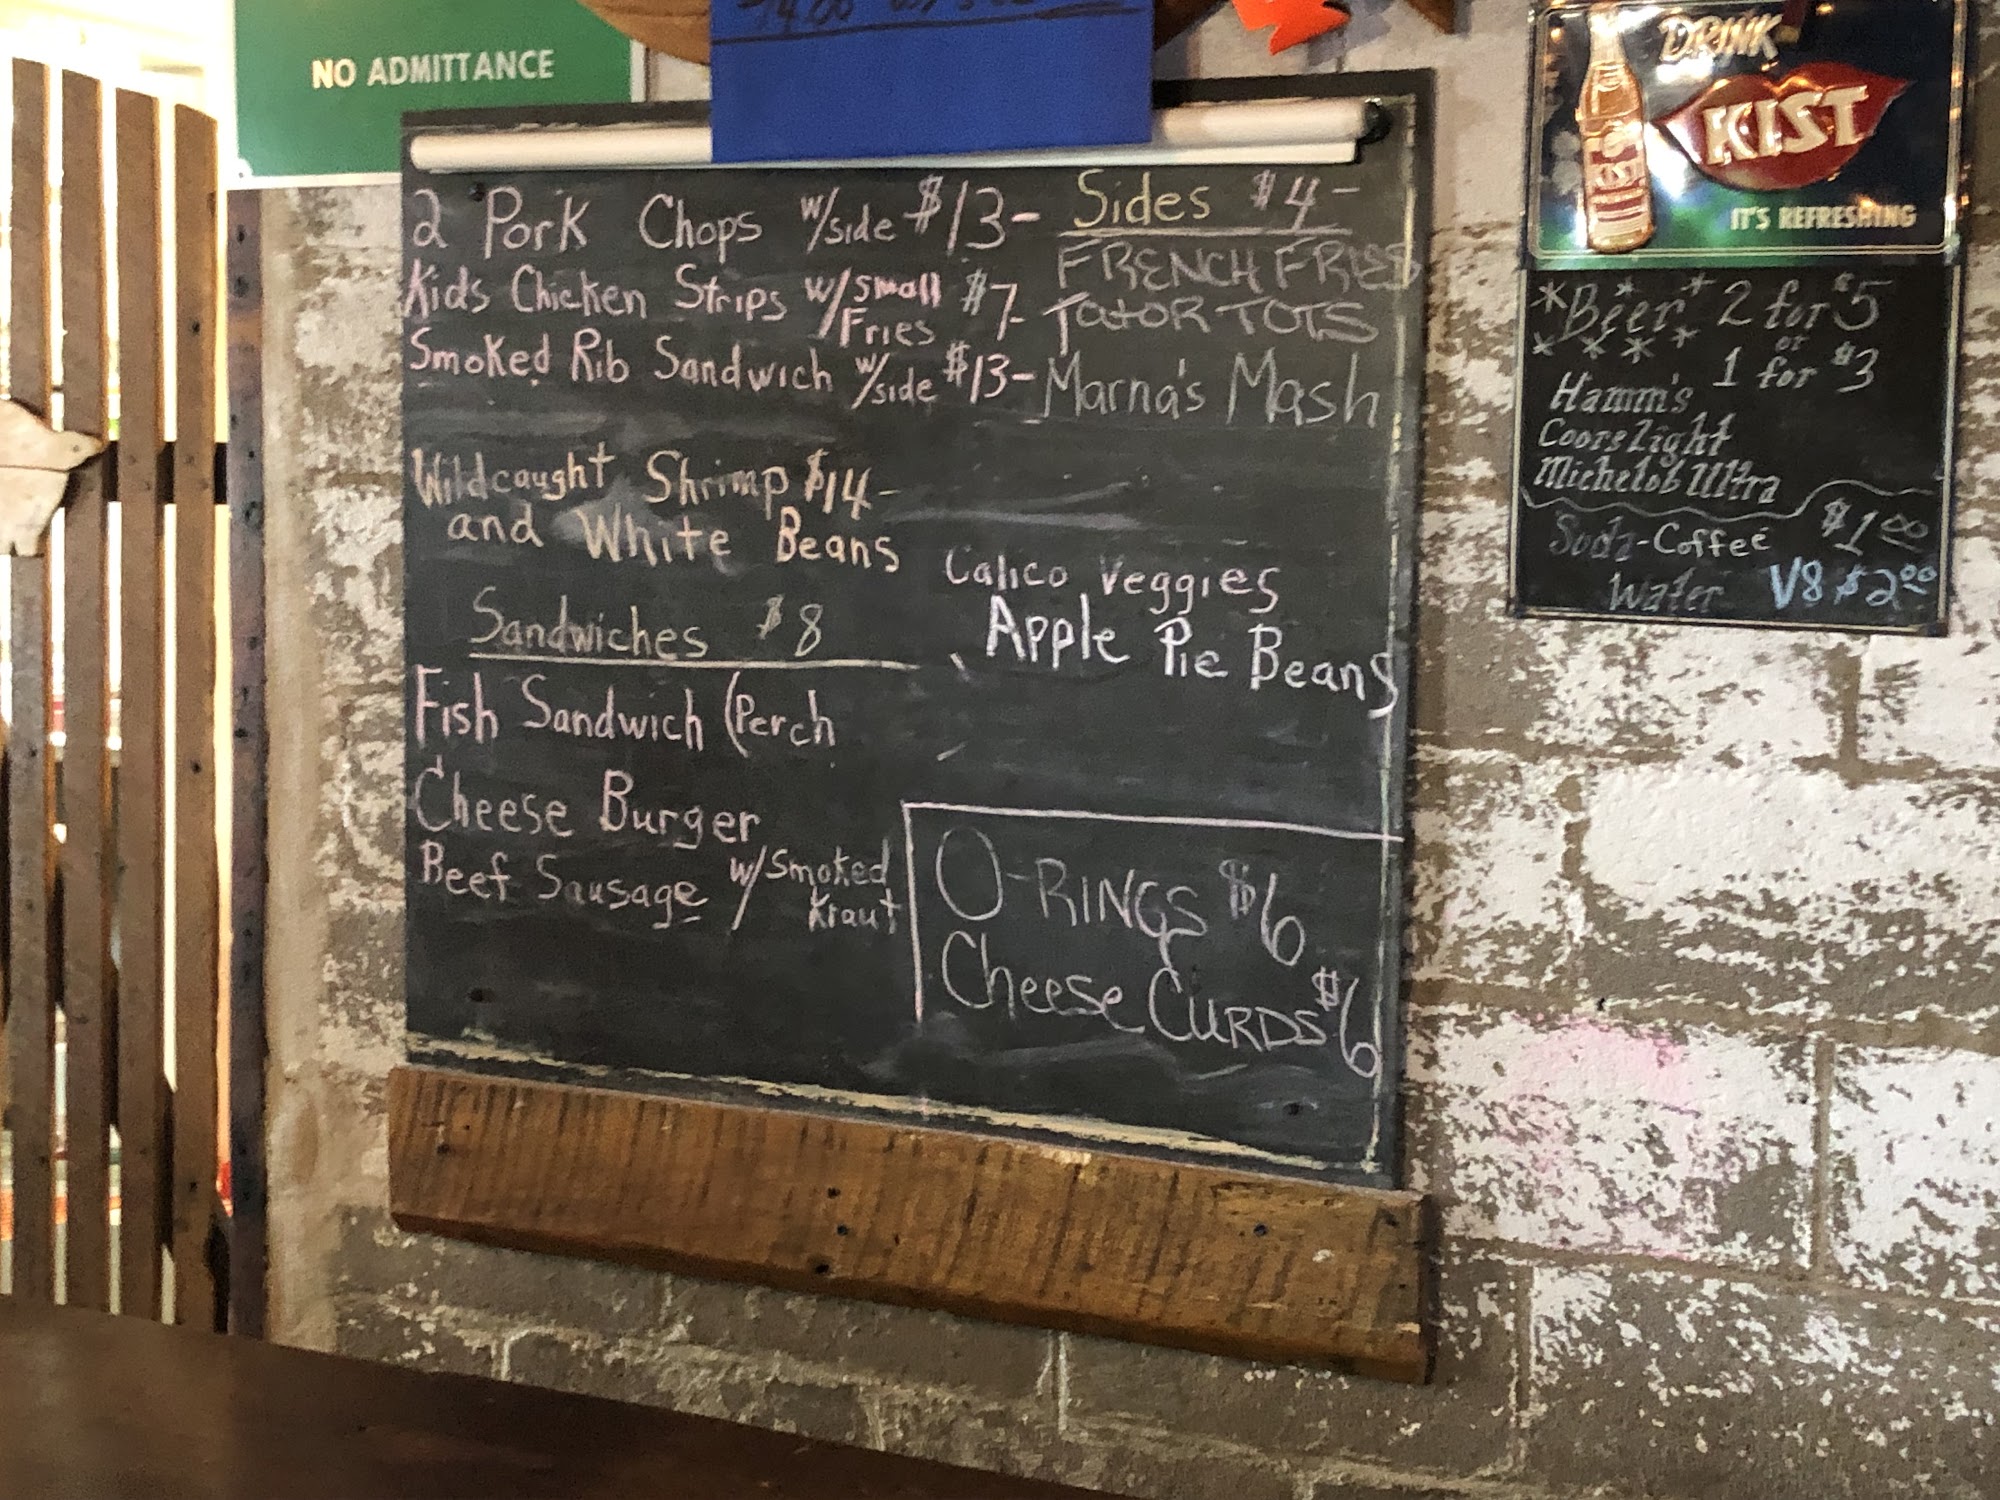 NO ADMITTANCE
2 Pork Chops w/side $13-
Kids Chicken Strips w/small Fries $7-
Smoked Rib Sandwich w/side $13-
Wildcaught Shrimp $14-
and White Beans
Sandwiches $8
Fish Sandwich (Perch
Cheese Burger
Beef Sausage w/Smoked Kraut
Sides $4-
FRENCH FRIES
TatOR TOTS
Marna's Mash
Calico Veggies
Apple Pie Beans
O-RINGS $6
Cheese CURDS $6
DRINK
KIST
IT'S REFRESHING
*Beer* 2 for $5
or
* * * * 1 for $3
Hamm's
Coors Light
Michelob Ultra
Soda-Coffee $1.00
Water V8 $2.00